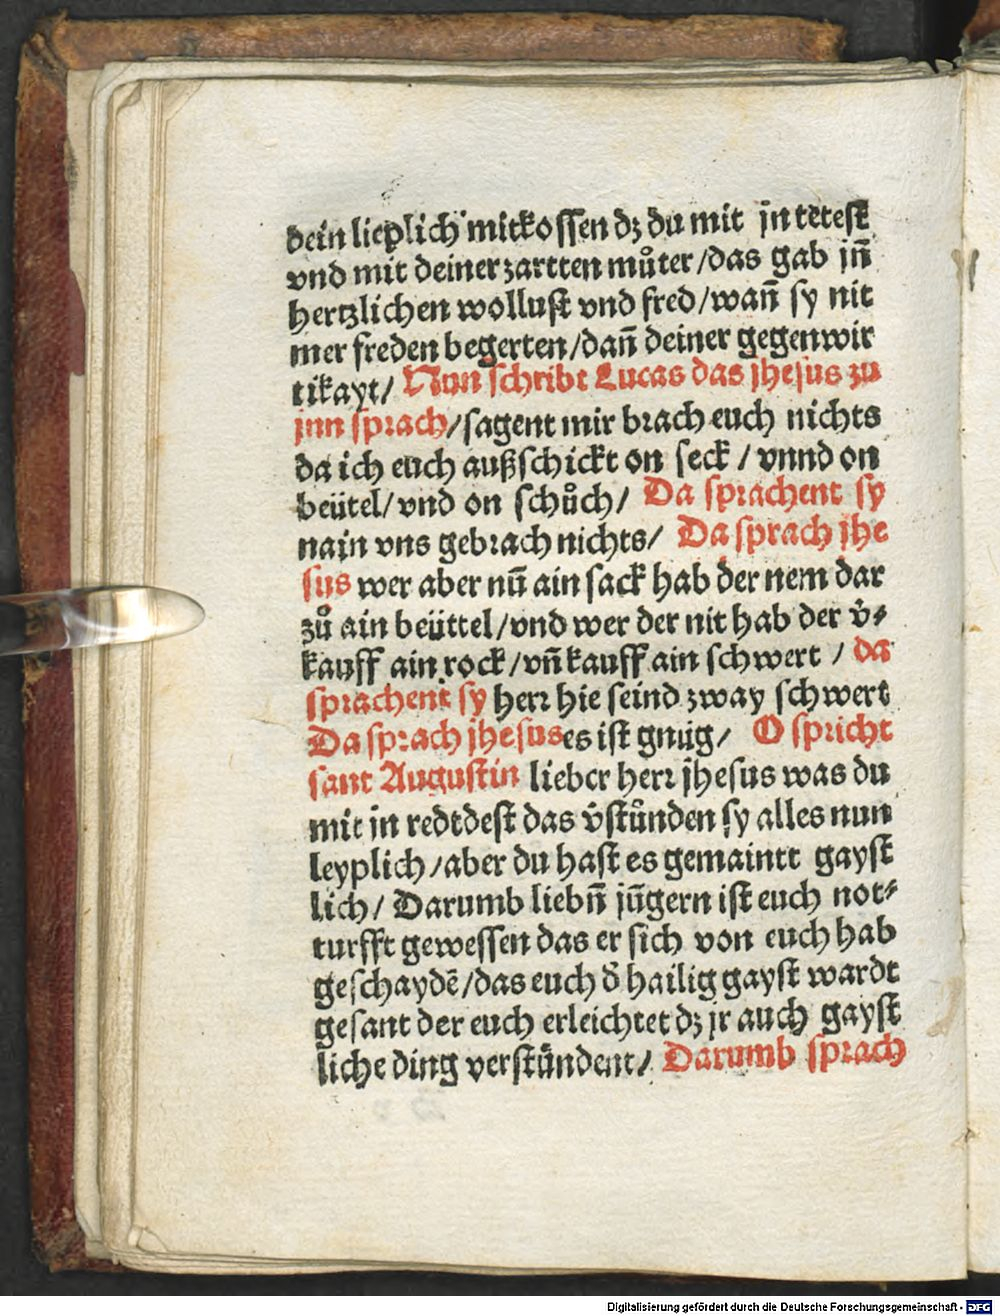 dein lieplich mitkossen dʒ du mit jn tetest
vnd mit deiner zartten můter/das gab jn̄
hertzlichen wollust vnd fred/wan̄ sy nit
mer freden begerten/dan̄ deiner gegenwir
tikayt/ Nun schribt Lucas das jhesus zu
jnn sprach/sagent mir brach euch nichts
da ich euch außschickt on seck / vnnd on
beütel/vnd on schůch/ Da sprachent sy
nain vns gebrach nichts/ Da sprach jhe
sus wer aber nū ain sack hab der nem dar
zů ain beüttel/vnd wer der nit hab der v̄-
kauff ain rock/vn̄ kauff ain schwert / da
sprachent sy herr hie seind zway schwert
Da sprach jhesus es ist gnůg/ O spricht
sant Augustin lieber herr jhesus was du
mit jn redtdest das v̄stůnden sy alles nun
leyplich/aber du hast es gemaintt gayst
lich/ Darumb liebn̄ jūgern ist euch not-
turfft gewessen das er sich von euch hab
geschaydē/das euch d̄ hailig gayst wardt
gesant der euch erleichtet dʒ jr auch gayst
liche ding verstündent/ Darumb sprach
Digitalisierung gefördert durch die Deutsche Forschungsgemeinschaft - DFG